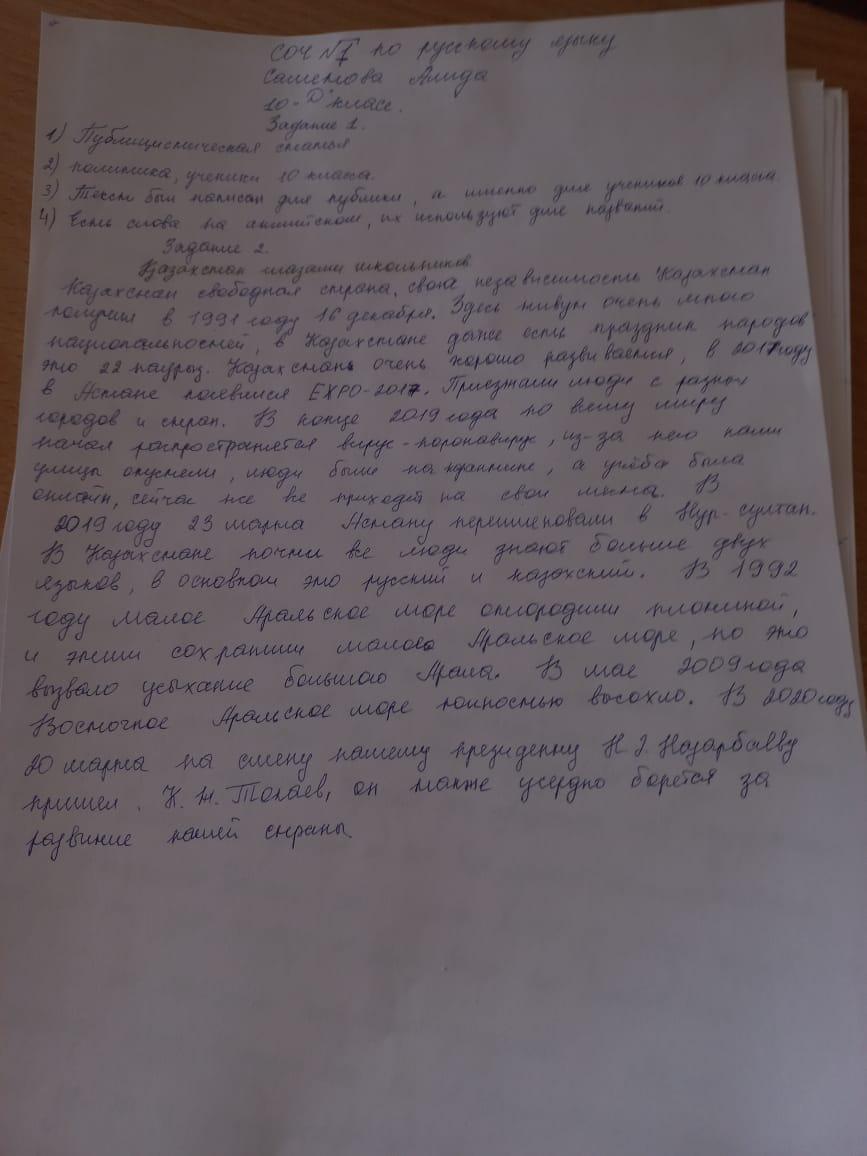 СОЧ №1 по русскому языку
Саметова Алида
10-"D" класс.
Задание 1.
1) Публицистическая статья
2) политика, ученики 10 класса.
3) Текст был написан для публики, а именно для учеников 10 класса.
4) Есть слова на английском, их используют для названий.
Задание 2.
Казахстан глазами школьников
Казахстан свободная страна, свою независимость Казахстан
получил в 1991 году 16 декабря. Здесь живут очень много
национальностей, в Казахстане даже есть праздник народов
это 22 наурыз. Казахстан очень хорошо развивается, в 2017 году
в Астане появился EXPO-2017. Приезжали люди с разных
городов и стран. В конце 2019 года по всему миру
начал распространятся вирус-коронавирус, из-за него наши
улицы опустели, люди были на карантине, а учёба была
онлайн, сейчас же все приходят на свои места. В
2019 году 23 марта Астану переименовали в Нур-султан.
В Казахстане почти все люди знают больше двух
языков, в основном это русский и казахский. В 1992
году малое Аральское море отгородили плотиной,
и этим сохранили малое Аральское море, но это
вызвало усыхание большого Арала. В мае 2009 года
Восточное Аральское море полностью высохло. В 2020 году
20 марта на смену нашему президенту Н. З. Назарбаеву
пришел К. Ж. Токаев, он также усердно борется за
развитие нашей страны.